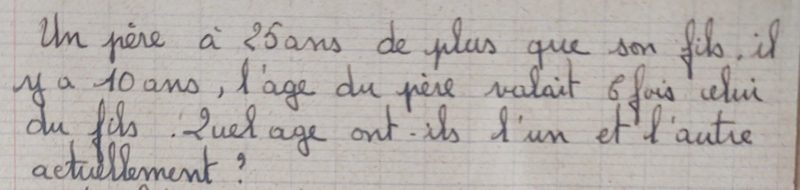 Un père à 25 ans de plus que son fils. il
y a 10 ans, l'age du père valait 6 fois celui
du fils. Quel age ont-ils l'un et l'autre
actuellement ?